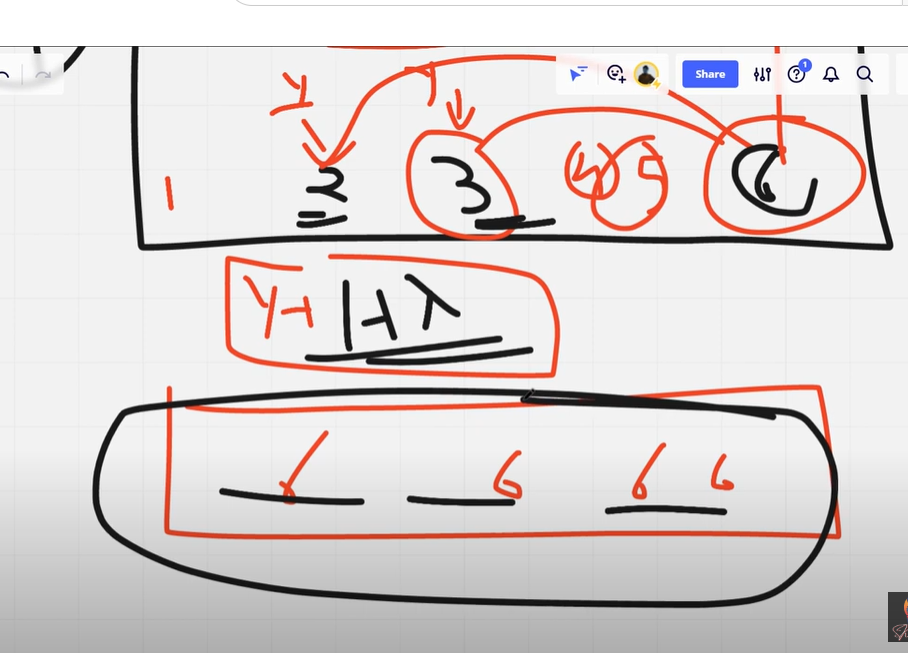 Share 1
y y
1 2 3 4 5 6
y+1+λ
6 6 6 6